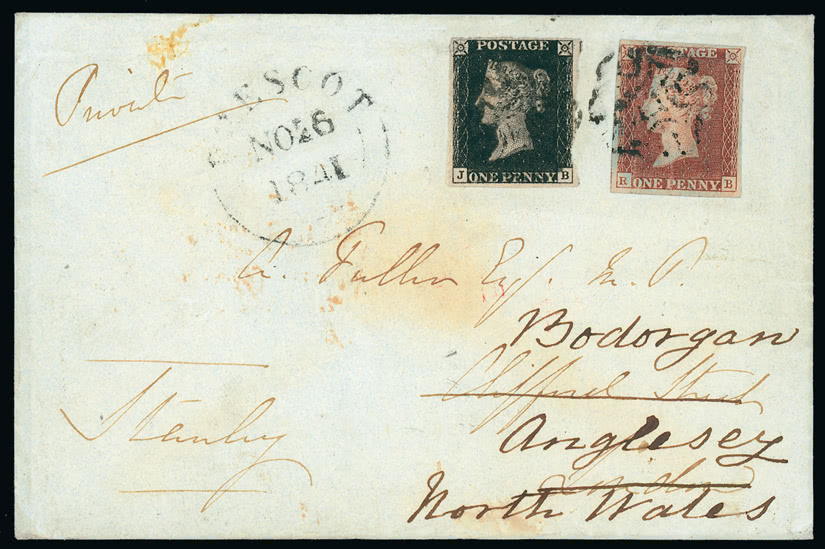 Private
ESCOT
NO 26
1841
POSTAGE
J ONE PENNY B
POSTAGE
R ONE PENNY B
A. Fuller Esq. M. P.
Bodorgan
Clifford Street
Anglesey
London
North Wales
Stanley